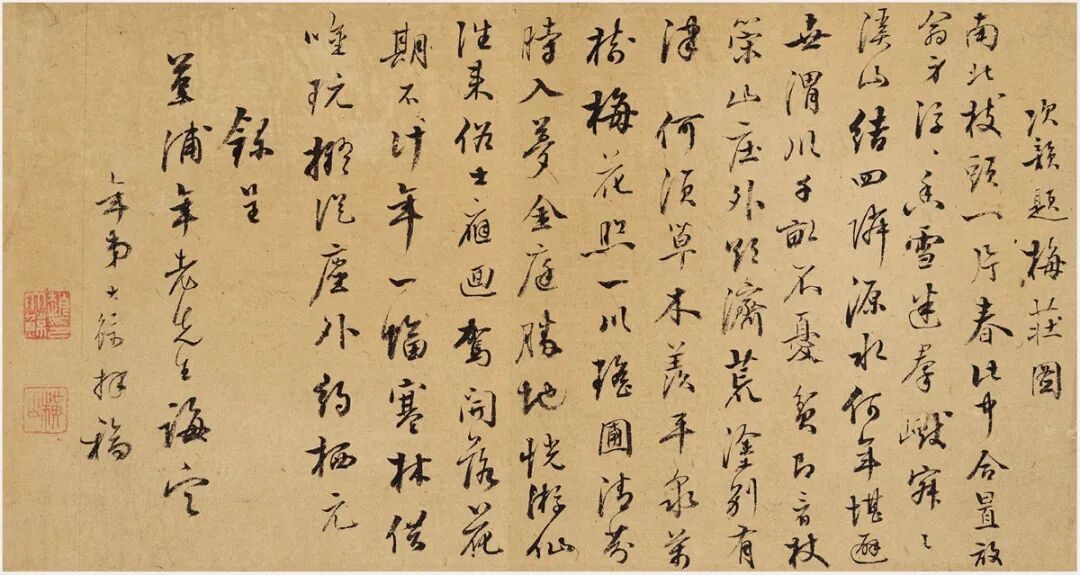 次韻題梅莊圖
南北枝頭一片春此中合置放
翁身浮々香雪迷羣巘寂々
溪山結四隣源水何年堪避
世渭川千畝不憂貧即看杖
策山庄外濟荒塗別有
津 何須草木羨平泉萬
樹梅花照一川瑤圃清芬
時入夢金庭勝地恍游仙
往來俗士應迴駕開落花
期不計年一幅寒林供
唯玩擬從塵外約栖元
錄呈
浦年老先生誨定
年弟大拜稿